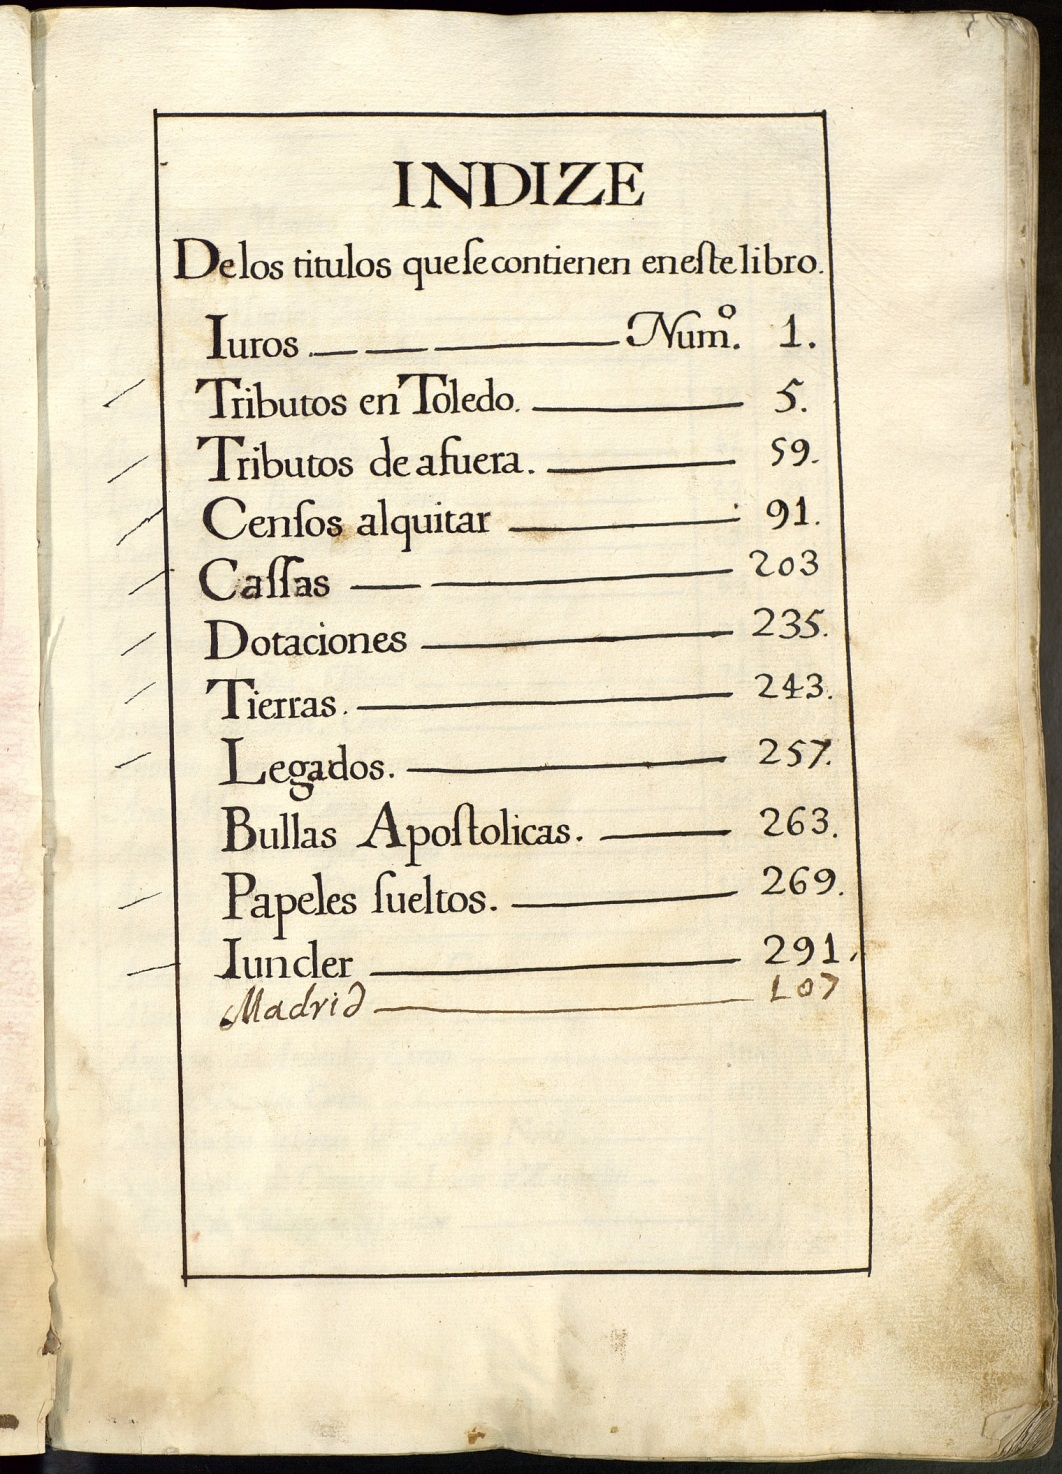 INDIZE
De los titulos que ſe contienen en eſte libro.
Iuros. Num.º 1.
Tributos en Toledo. 5.
Tributos de afuera. 59.
Cenſos alquitar 91.
Caſſas 203
Dotaciones 235.
Tierras. 243.
Legados. 257.
Bullas Apoſtolicas. 263.
Papeles ſueltos. 269.
Iuncler 291.
Madrid 107